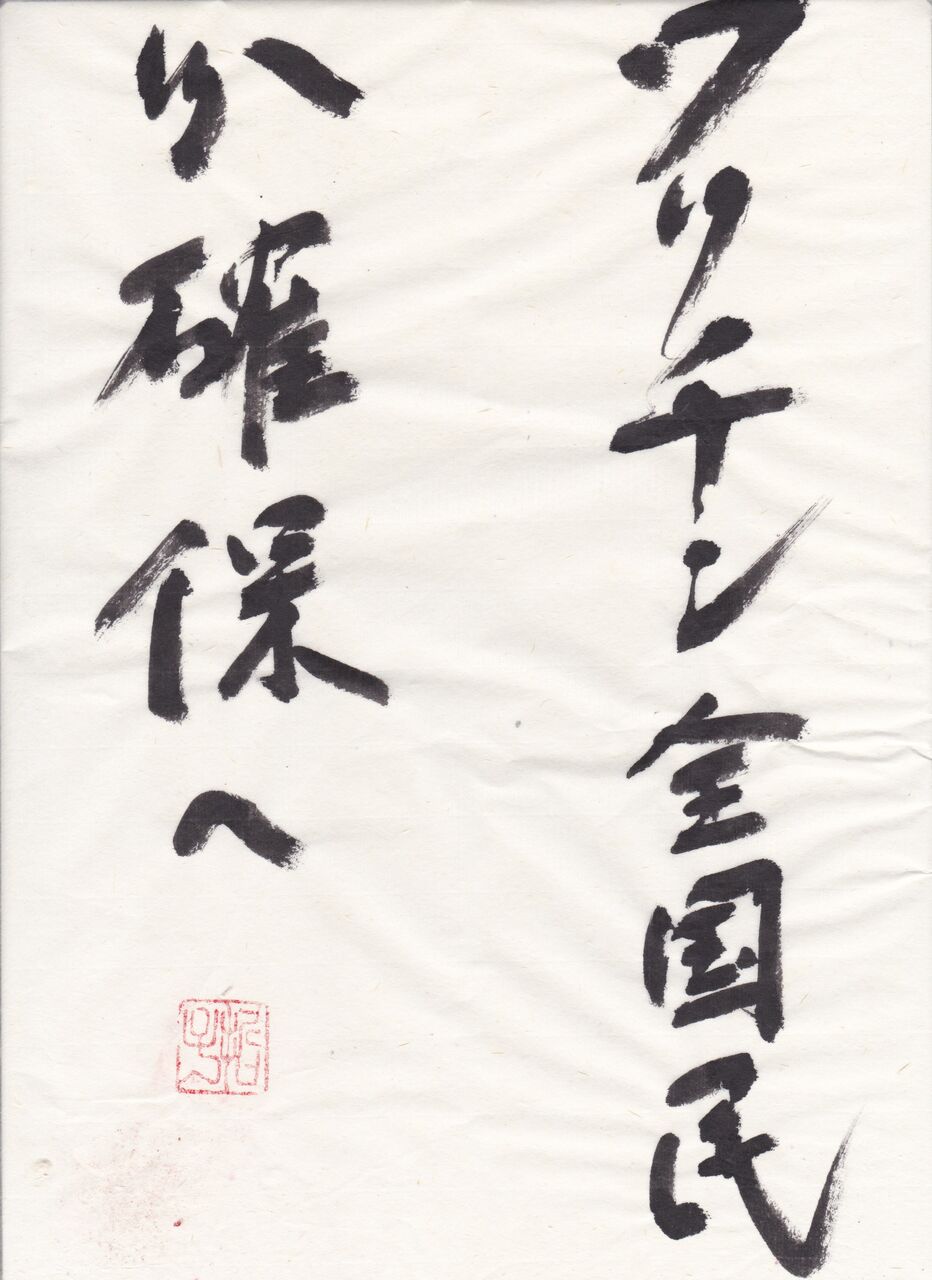 ワクチン全国民
分確保へ